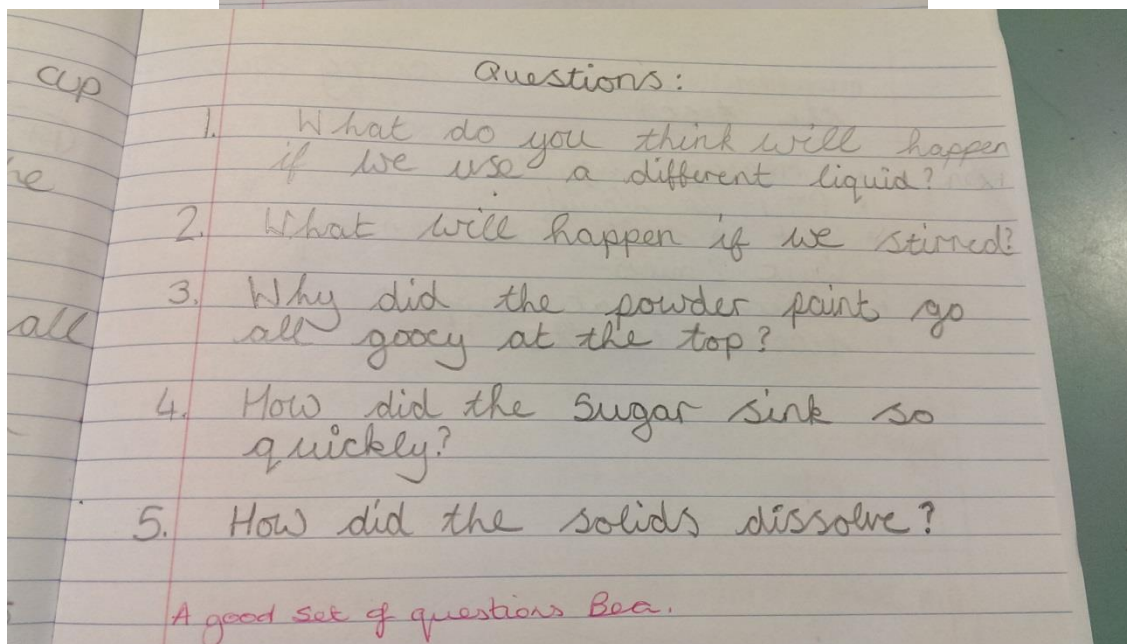 cup
Questions:
1. What do you think will happen
if we use a different liquid?
2. What will happen if we stirred?
3. Why did the powder paint go
all gooey at the top?
all
4. How did the sugar sink so
quickly?
5. How did the solids dissolve?
A good set of questions Bea.